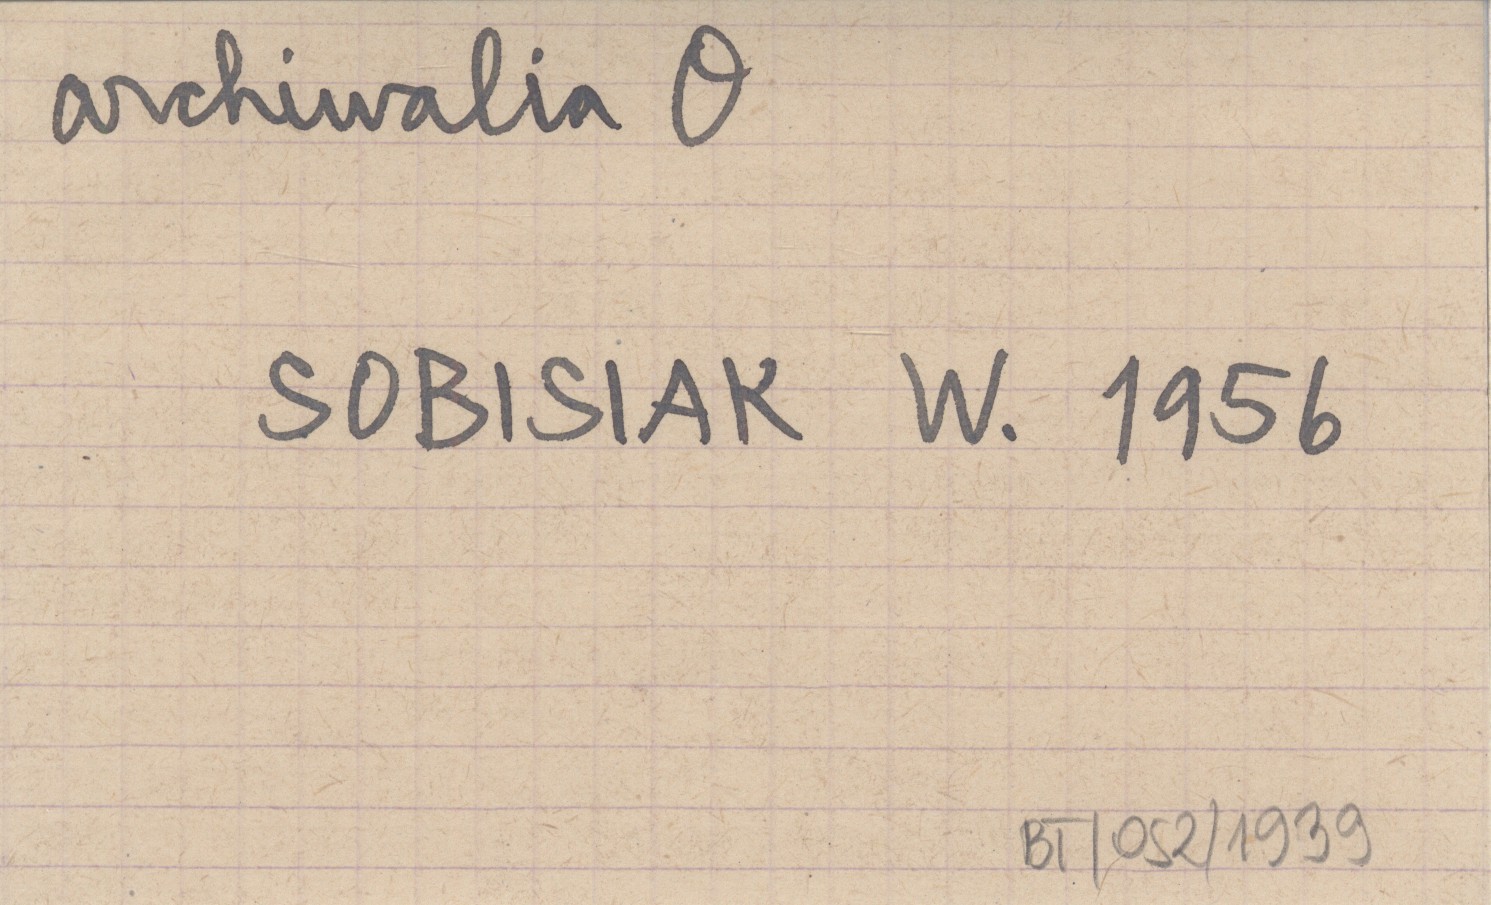 archiwalia O
SOBISIAK W. 1956
BT/OS2/1939